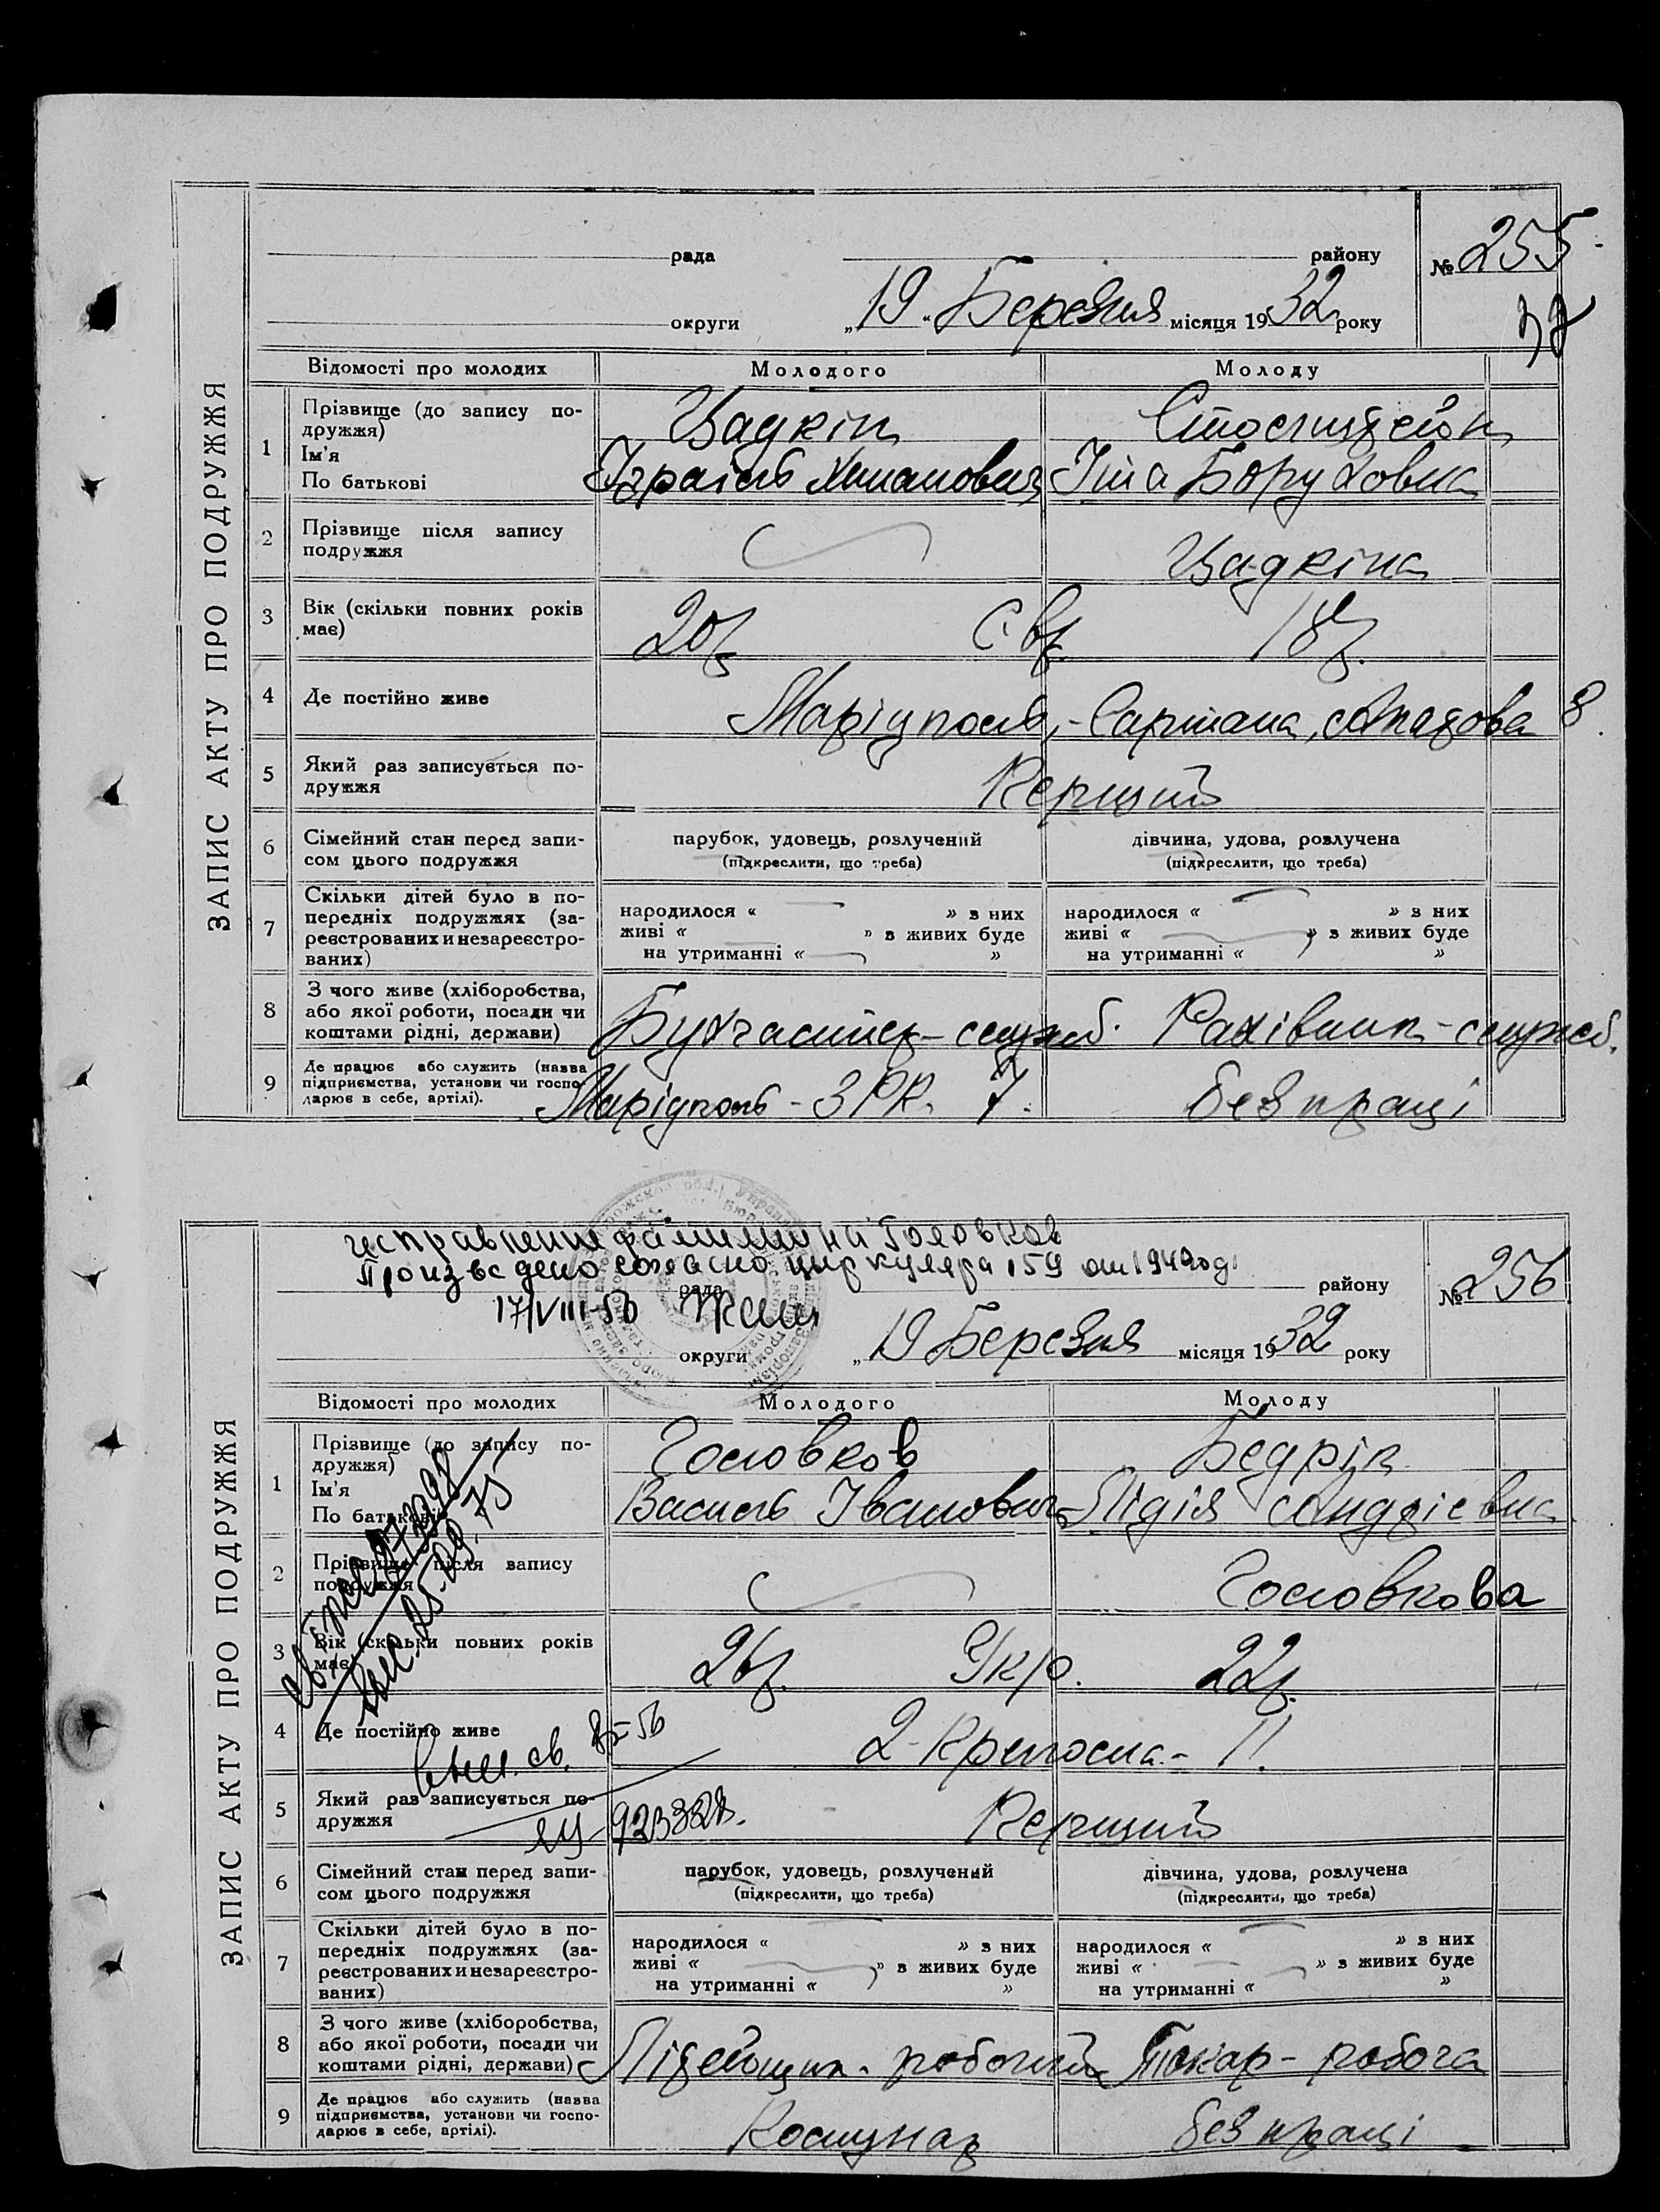 ЗАПИС АКТУ ПРО ПОДРУЖЖЯ
рада району № 255
37
округи „19“ Березня місяця 1932 року
Відомості про молодих Молодого Молоду
1 Прізвище (до запису по-
дружжя) Цадкін
Ім'я
По батькові Ізраїль Іта Боруховна
2 Прізвище після запису
подружжя Цадкіна
3 Вік (скільки повних років
має) 20р. Євр. 18р.
4 Де постійно живе Маріуполь, - Сартана, 8.
5 Який раз записується по-
дружжя Перший
6 Сімейний стан перед запи-
сом цього подружжя
парубок, удовець, розлучений
(підкреслити, що треба)
дівчина, удова, розлучена
(підкреслити, що треба)
7 Скільки дітей було в по-
передніх подружжях (за-
реєстрованих и незареєстро-
ваних)
народилося « » з них
живі « » з живих буде
на утриманні « »
народилося « » з них
живі « » з живих буде
на утриманні « »
8 З чого живе (хліборобства,
або якої роботи, посади чи
коштами рідні, держави) Бухгалтер - служб. Рахівник - служб.
9 Де працює або служить (назва
підприємства, установи чи госпо-
дарює в себе, артілі). Маріуполь - ЗРК. 7. без праці
ЗАПИС АКТУ ПРО ПОДРУЖЖЯ
исправление фамилии на Головков
Произведено согласно циркуляра 159 от 1949 год
рада району № 256
17/VIII-56
округи „19 Березня місяця 1932 року
Відомості про молодих Молодого Молоду
1 Прізвище (до запису по-
дружжя) Головков Бедрік
Ім'я
По батькові Василь Іванович Лідія Андріевна
2 Прізвище після запису
подружжя Головкова
3 Вік (скільки повних років
має) 26р. Укр. 22р.
4 Де постійно живе 11.
5 Який раз записується по-
дружжя Перший
6 Сімейний стан перед запи-
сом цього подружжя
парубок, удовець, розлучений
(підкреслити, що треба)
дівчина, удова, розлучена
(підкреслити, що треба)
7 Скільки дітей було в по-
передніх подружжях (за-
реєстрованих и незареєстро-
ваних)
народилося « » з них
живі « » з живих буде
на утриманні « »
народилося « » з них
живі « » з живих буде
на утриманні « »
8 З чого живе (хліборобства,
або якої роботи, посади чи
коштами рідні, держави) робочий Токар - робоча
9 Де працює або служить (назва
підприємства, установи чи госпо-
дарює в себе, артілі). Комунар без праці